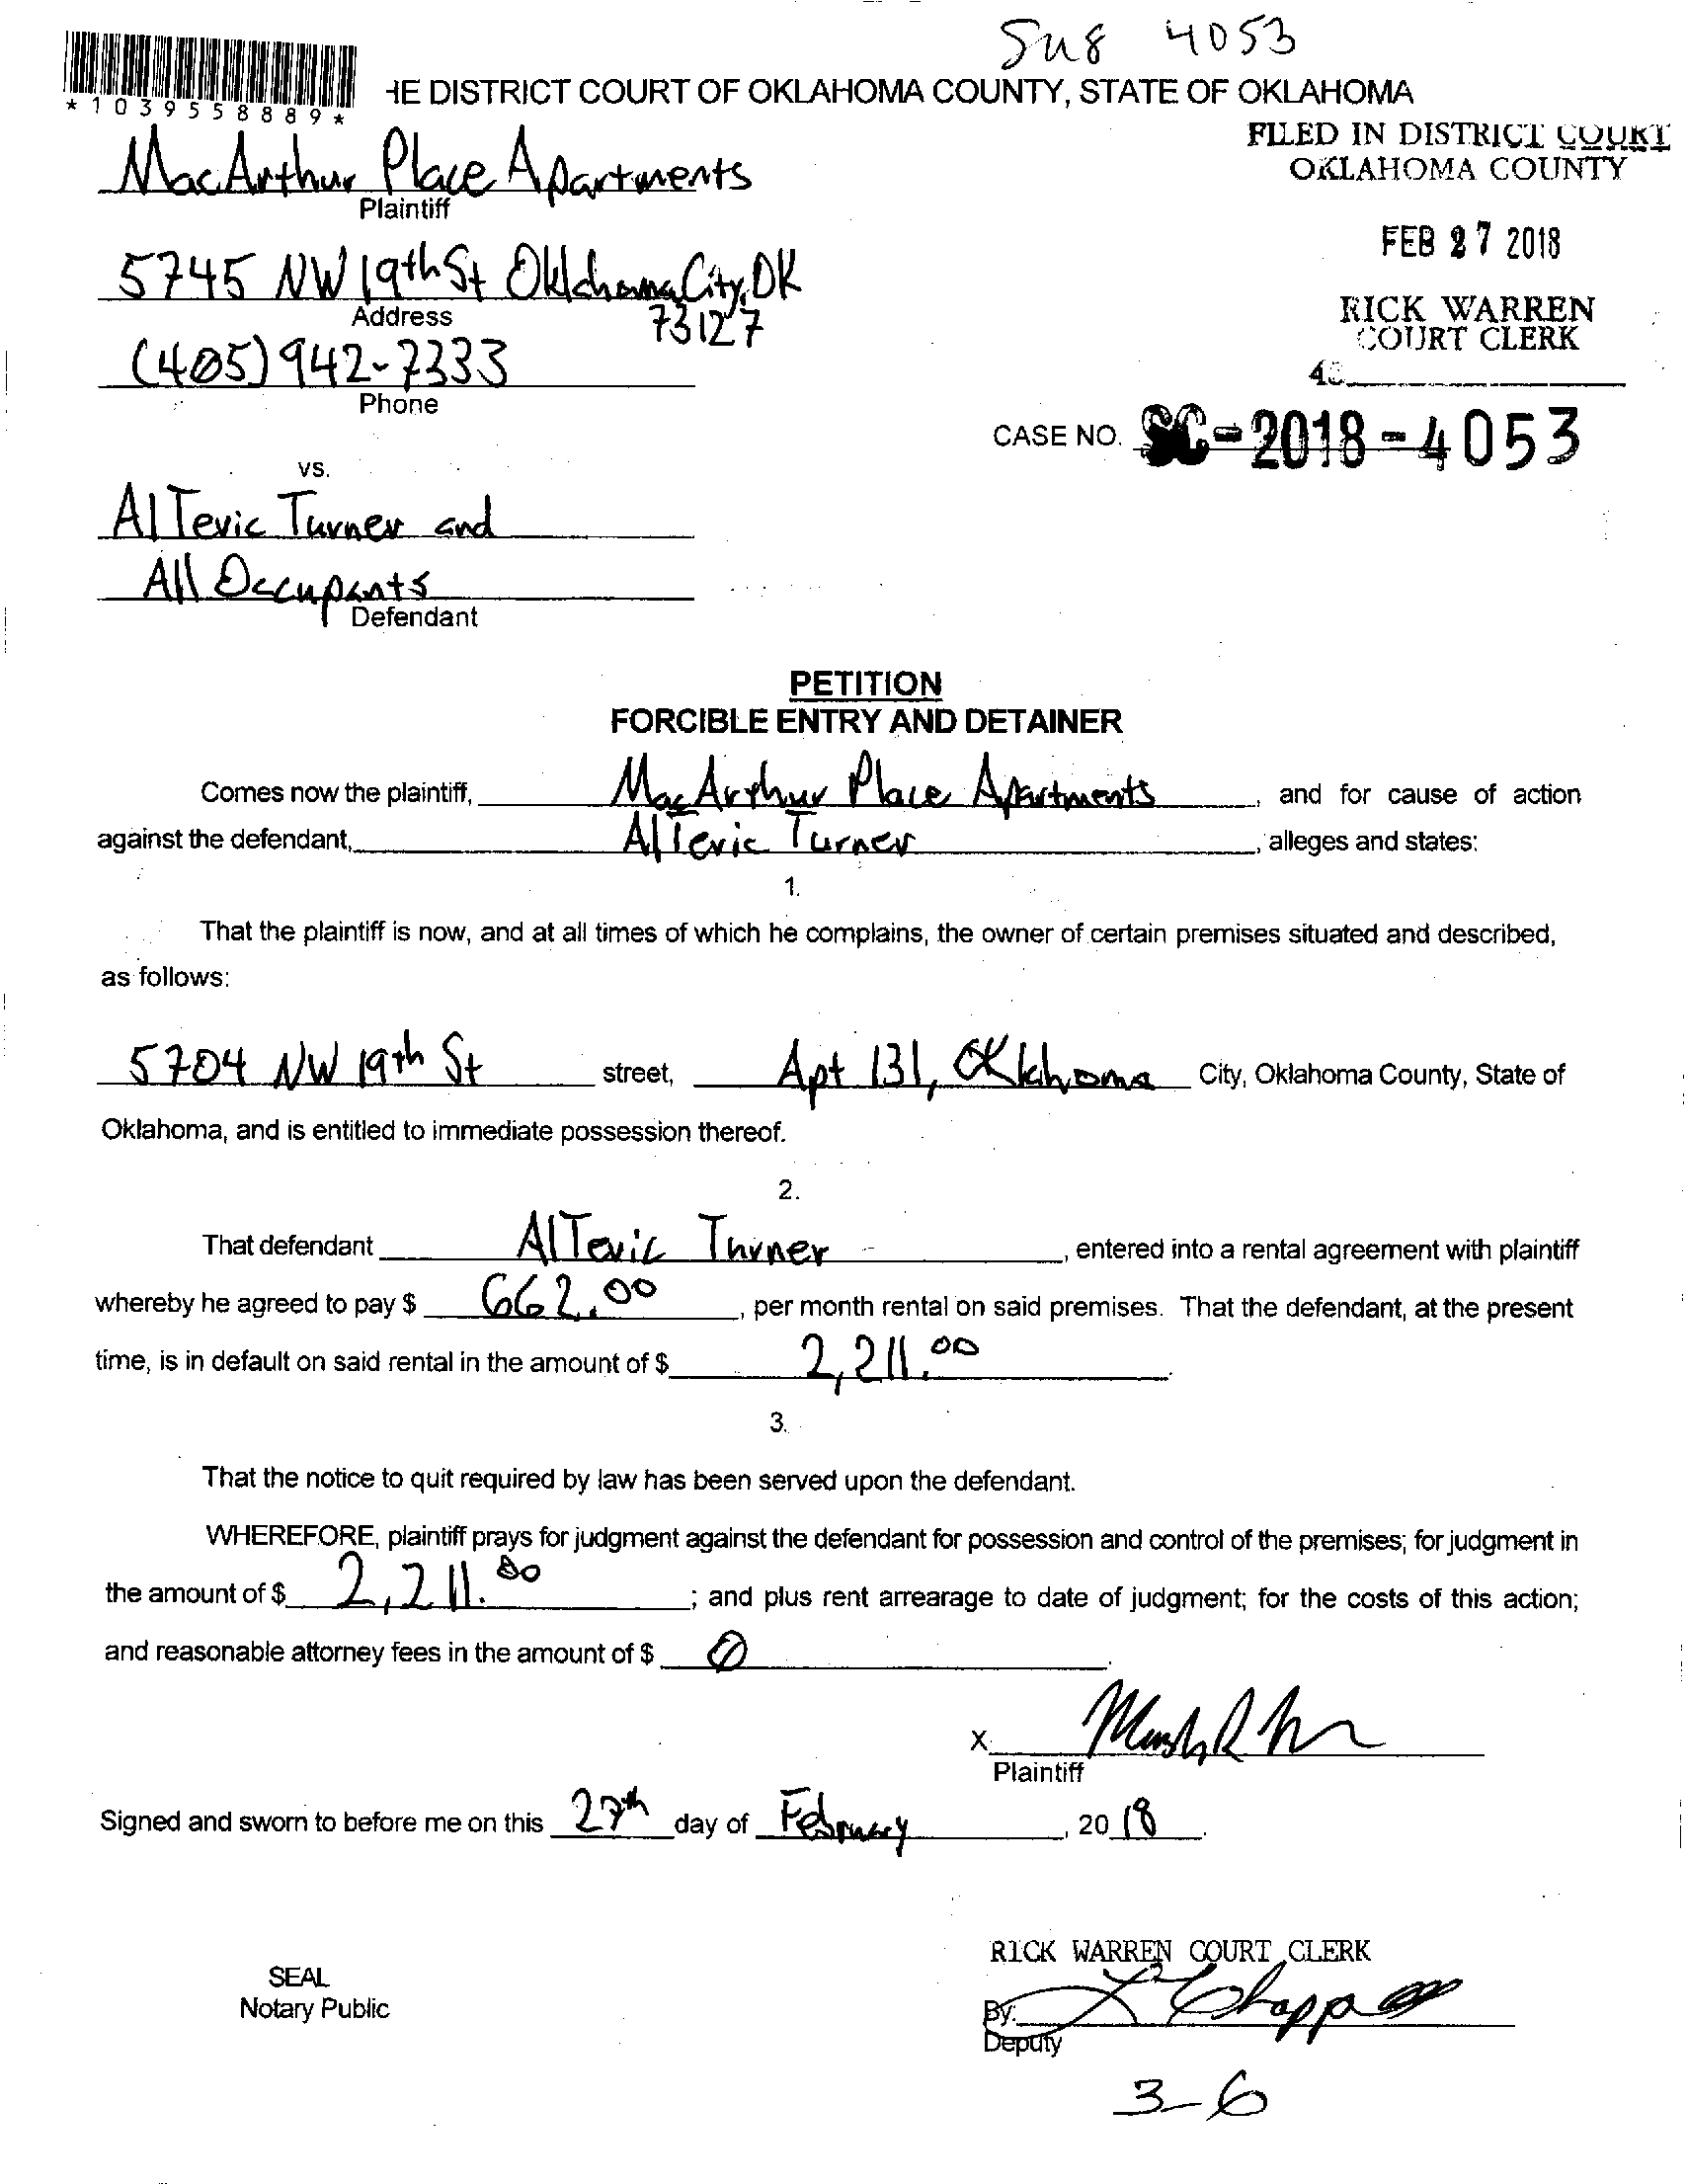 4053
*1039558889*
HE DISTRICT COURT OF OKLAHOMA COUNTY, STATE OF OKLAHOMA
FILED IN DISTRICT COURT
OKLAHOMA COUNTY
MacArthur Place Apartments
Plaintiff
FEB 27 2018
5745 NW 19th St Oklahoma City, OK
73127
Address
RICK WARREN
COURT CLERK
(405) 942-7333
Phone
CASE NO. SC-2018-4053
vs.
AlTevic Turner and
All Occupants
Defendant
PETITION
FORCIBLE ENTRY AND DETAINER
Comes now the plaintiff, MacArthur Place Apartments, and for cause of action
against the defendant, AlTevic Turner, alleges and states:
1.
That the plaintiff is now, and at all times of which he complains, the owner of certain premises situated and described,
as follows:
5704 NW 19th St street, Apt 131, Oklahoma City, Oklahoma County, State of
Oklahoma, and is entitled to immediate possession thereof.
2.
That defendant AlTevic Turner, entered into a rental agreement with plaintiff
whereby he agreed to pay $ 662.00, per month rental on said premises. That the defendant, at the present
time, is in default on said rental in the amount of $ 2,211.00.
3.
That the notice to quit required by law has been served upon the defendant.
WHEREFORE, plaintiff prays for judgment against the defendant for possession and control of the premises; for judgment in
the amount of $ 2,211.00; and plus rent arrearage to date of judgment; for the costs of this action;
and reasonable attorney fees in the amount of $ 0.
X
Plaintiff
Signed and sworn to before me on this 27th day of February, 2018.
RICK WARREN COURT CLERK
SEAL
Notary Public
By:
Deputy
3-6